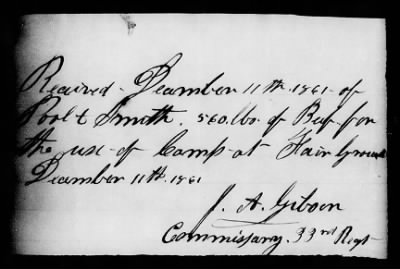 Received December 11th 1861 of
Pool & Smith. 560 lbs of Beef for
the use of Camp at Fair Ground
December 11th 1861
J. A. Gibson
Commissary. 33rd Regt